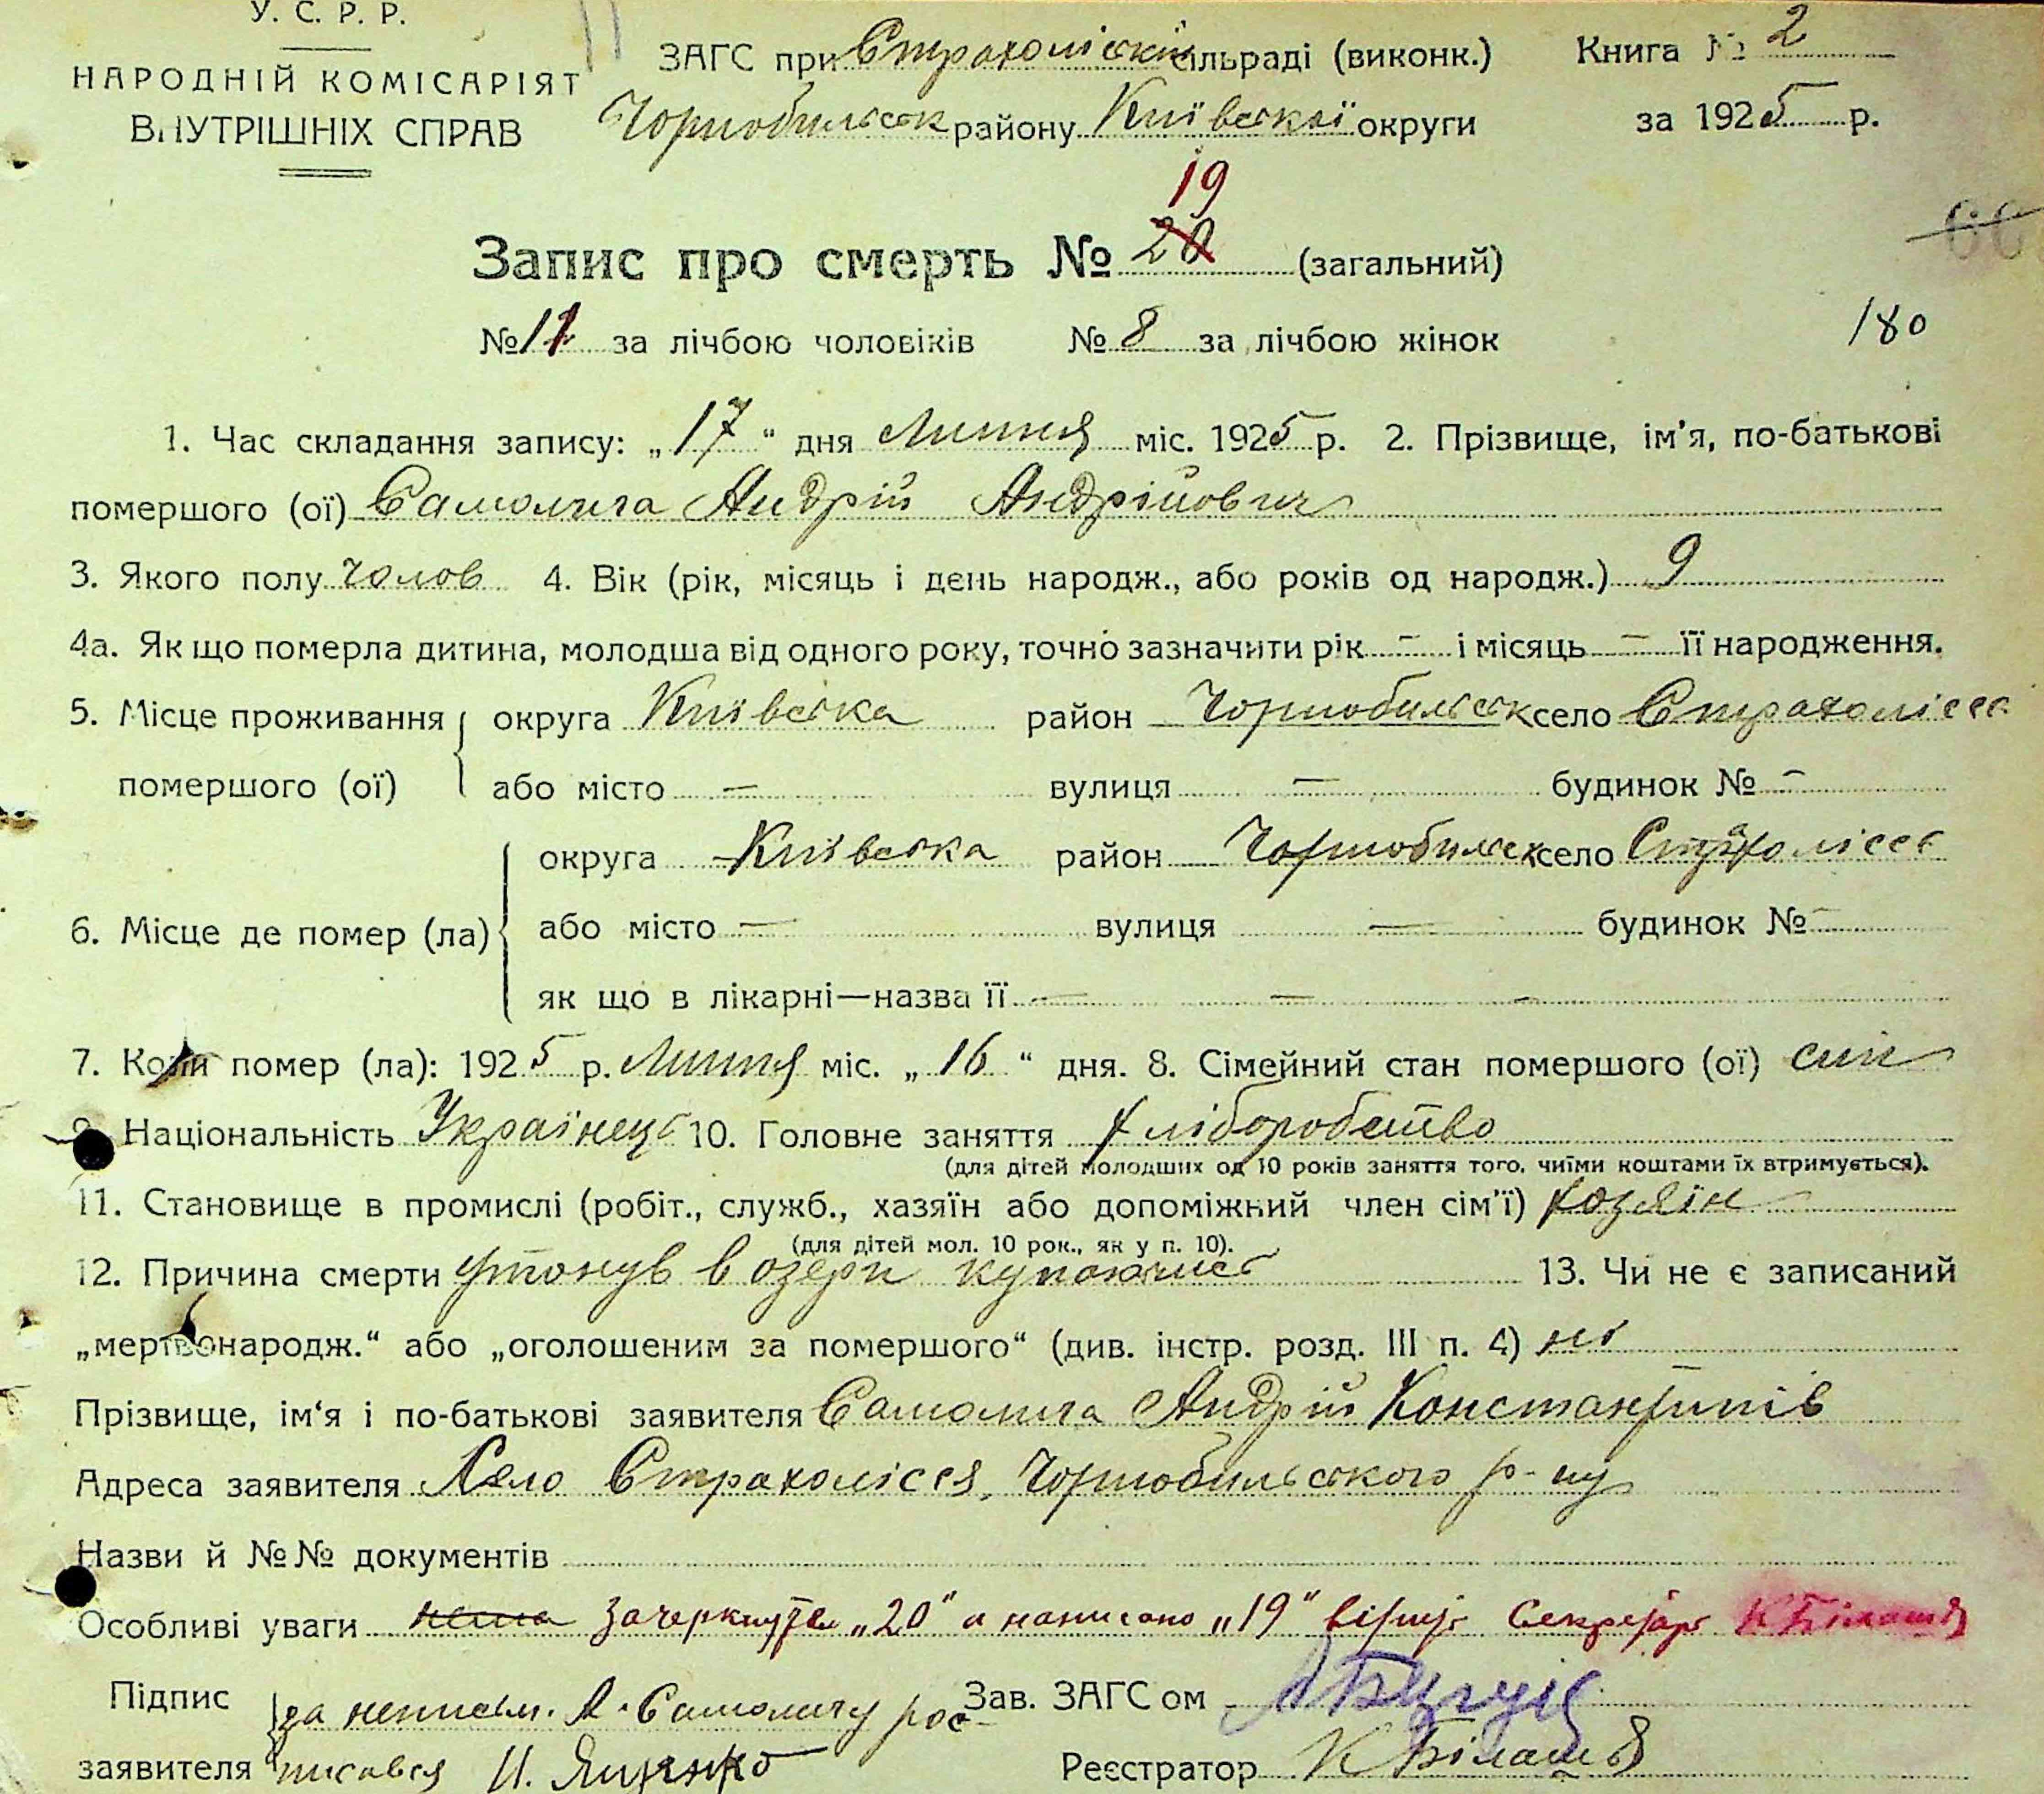 У. С. Р. Р.
НАРОДНІЙ КОМІСАРІЯТ
ВНУТРІШНІХ СПРАВ
ЗАГС при Страхоліській сільраді (виконк.)
Чорнобильськ району Київської округи
Книга № 2
за 1925 р.
19
Запис про смерть № 20 (загальний)
№ 11 за лічбою чоловіків № 8 за лічбою жінок
180
1. Час складання запису: „17“ дня Липня міс. 1925 р. 2. Прізвище, ім’я, по-батькові
помершого (ої) Самолига Андрій Андрійович
3. Якого полу чолов 4. Вік (рік, місяць і день народж., або років од народж.) 9
4а. Як що померла дитина, молодша від одного року, точно зазначити рік — і місяць — її народження.
5. Місце проживання помершого (ої) округа Київська район Чорнобильськ село Страхолісся
або місто — вулиця — будинок № —
6. Місце де помер (ла) округа Київська район Чорнобильськ село Страхолісся
або місто — вулиця — будинок № —
як що в лікарні—назва її — — —
7. Коли помер (ла): 1925 р. Липня міс. „16“ дня. 8. Сімейний стан помершого (ої) син
9. Національність Українець 10. Головне заняття хліборобство
(для дітей молодших од 10 років заняття того, чиїми коштами їх втримується).
11. Становище в промислі (робіт., служб., хазяїн або допоміжний член сім’ї) хозяін
(для дітей мол. 10 рок., як у п. 10).
12. Причина смерти утонув в озери купаючись 13. Чи не є записаний
„мертвонародж.“ або „оголошеним за помершого“ (див. інстр. розд. III п. 4) ні
Прізвище, ім‘я і по-батькові заявителя Самолига Андрій Константинів
Адреса заявителя Село Страхолісся, Чорнобильського р-ну
Назви й №№ документів
Особливі уваги нема Зачеркнуте „20“ а написано „19“ вірить Секретарь К Білаш
Підпис заявителя за неписьм. А. Самолигу рос-
писався И. Яценко
Зав. ЗАГС ом
Реєстратор К Білаш